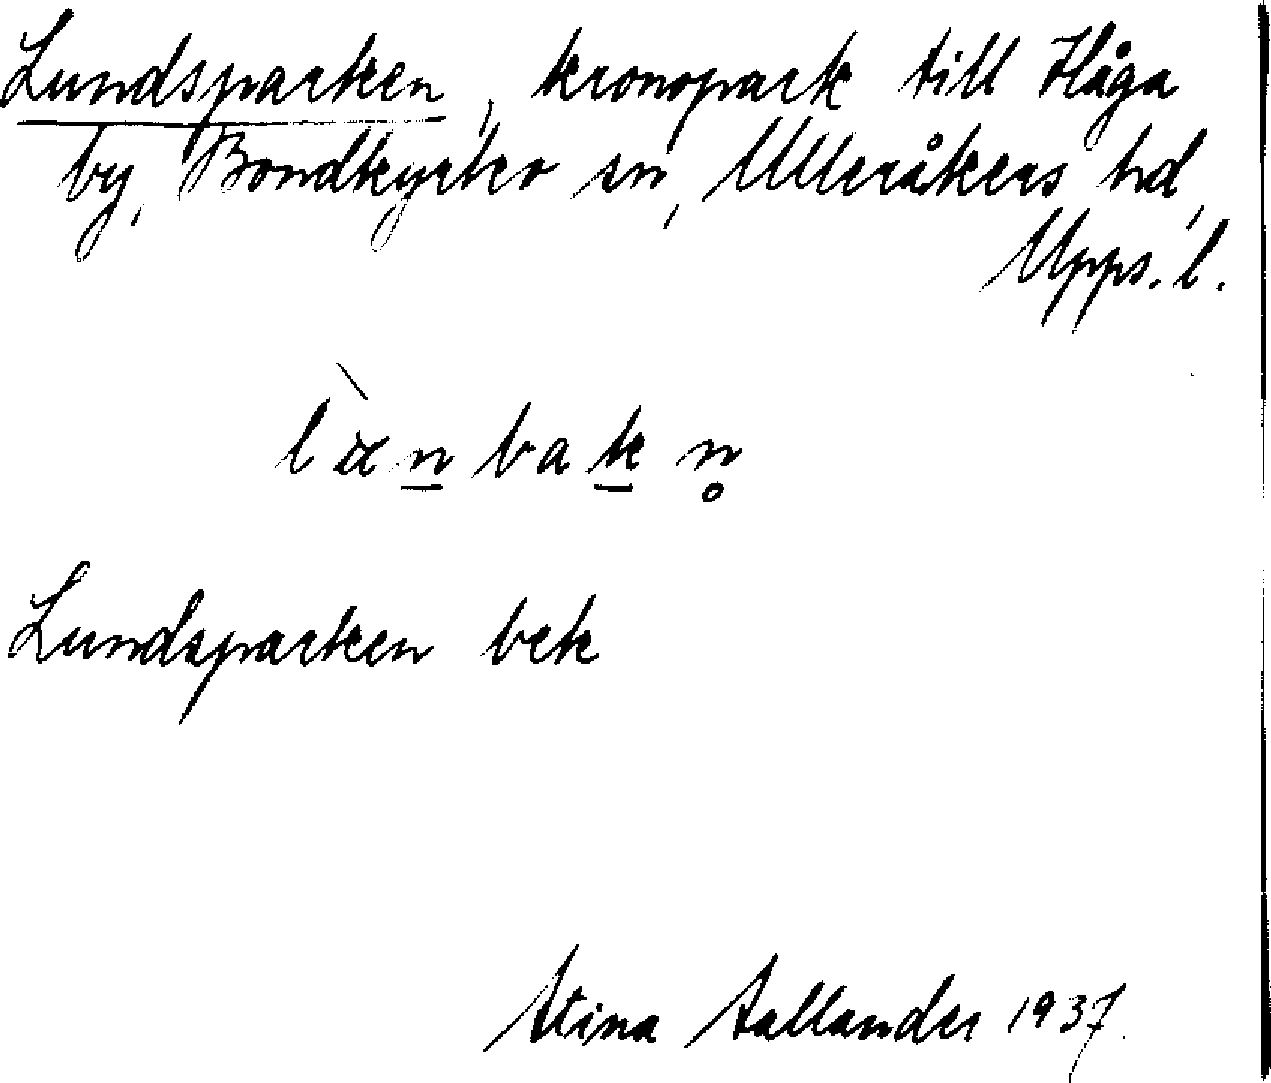 Lundsparken, kronopark till Håga
by, Bondkyrko sn, Ulleråkers hd,
Upps. l.
Lundsparken bek
Stina Tallander 1937.